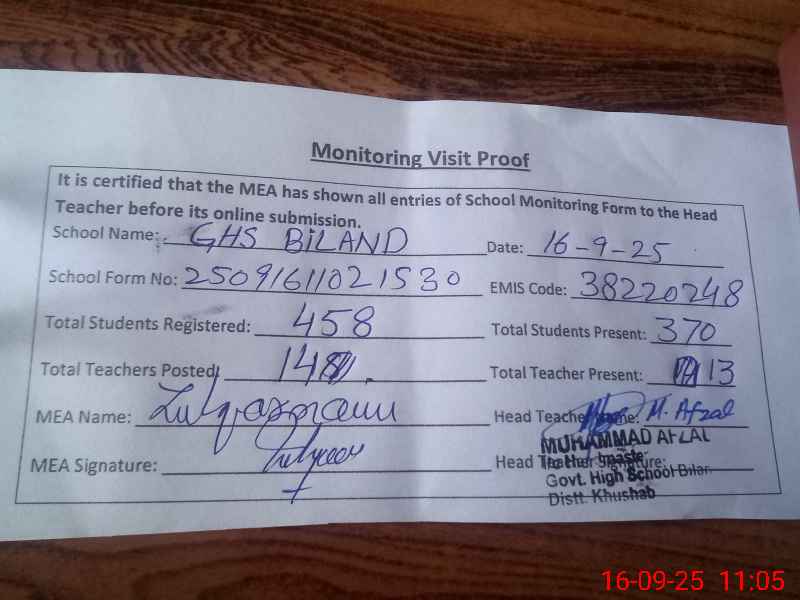 Monitoring Visit Proof
It is certified that the MEA has shown all entries of School Monitoring Form to the Head
Teacher before its online submission.
School Name: GHS BILAND Date: 16-9-25
School Form No: 25091611021530 EMIS Code: 38220248
Total Students Registered: 458 Total Students Present: 370
Total Teachers Posted: 14 Total Teacher Present: 13
MEA Name: Head Teacher Name: M. Afzal
MUHAMMAD AFZAL
MEA Signature: Head Teacher Signature:
Govt. High School Bilan
Distt. Khushab
16-09-25 11:05